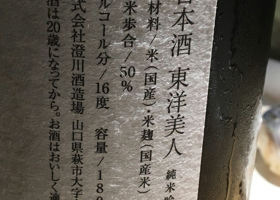 日本酒 東洋美人 純米吟
材料/米(国産)・米麹(国産米)
米歩合/50%
ルコール分/16度 容量/180
式会社澄川酒造場 山口県萩市大字
酒は20歳になってから。お酒はおいしく適